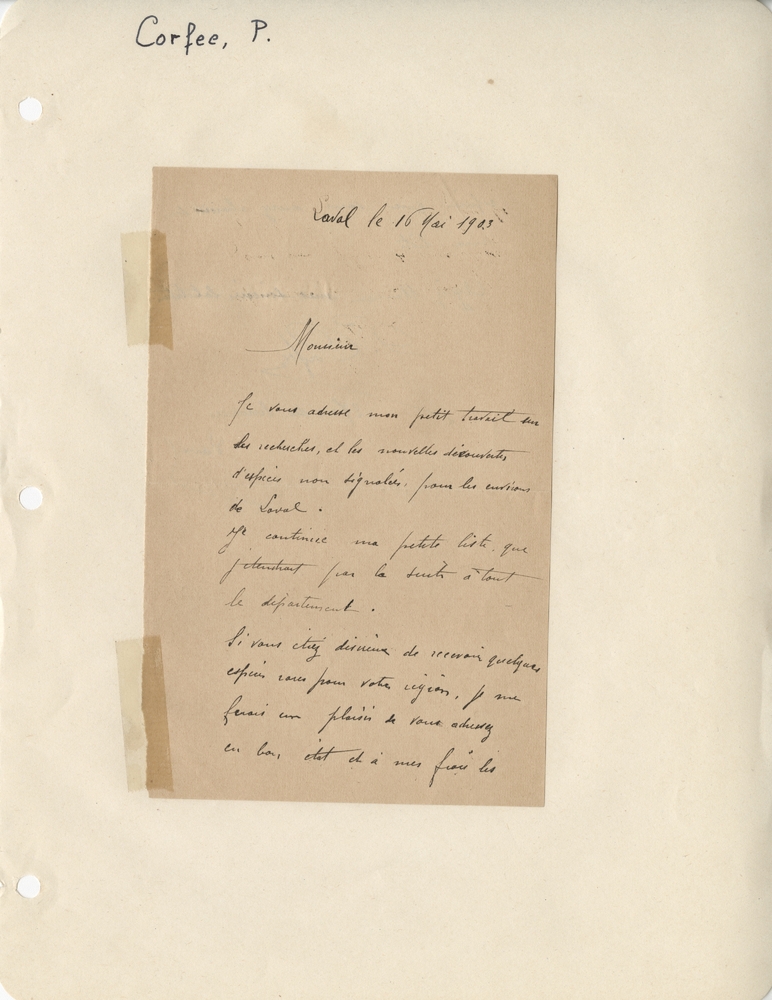 Corfee, P.
Laval le 16 Mai 1903
Monsieur
Je vous adresse mon petit travail sur
les recherches, et les nouvelles découvertes
d'espèces non signalées. pour les environs
de Laval.
Je continue ma petite liste. que
j'étendrait par la suite à tout
le département.
Si vous étiez désireux de recevoir quelques
espèces rares pour votre région, je me
ferais un plaisir de vous adressez
en bon état et à mes frais les